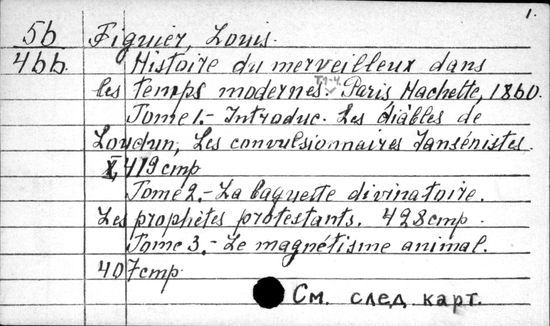 1.
5b Figuier, Louis.
4bb. Histoire du merveilleux dans
les temps modernes. T.1-4. Paris, Hachette, 1860.
Tome 1.- Introduc. Les diables de
Loudun, Les convulsionnaires Jansénistes.
X, 419 стр
Tome 2.- La baguette divinatoire.
Les prophètes protestants. 428 стр.
Tome 3.- Le magnétisme animal.
407 стр
См. след. карт.